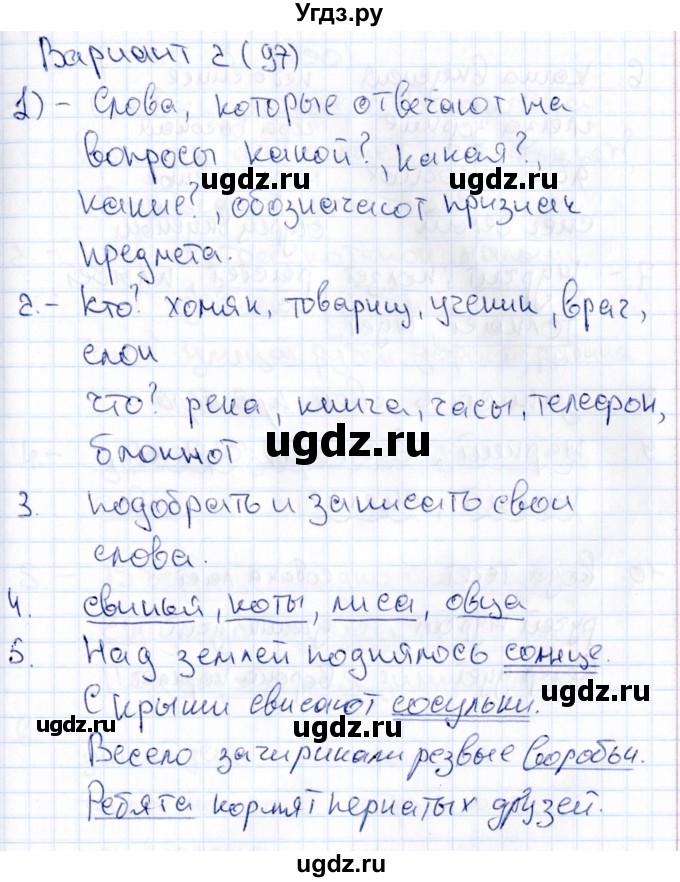 Угдз.ру
Вариант 2 (97)
1) - Слова, которые отвечают на
вопросы какой?, какая?,
ugdz.ru ugdz.ru
какие?, обозначают признак
предмета.
2. - Кто? хомяк, товарищ, ученик, врач,
слон
что? река, книга, часы, телефон,
блокнот
ugdz.ru
3. подобрать и записать свои
слова.
4. свинья, коты, лиса, овца
5. Над землей поднялось солнце.
С крыши свисают сосульки.
ugdz.ru ugdz.ru
Весело зачирикали резвые воробьи.
Ребята кормят пернатых друзей.
ugdz.ru